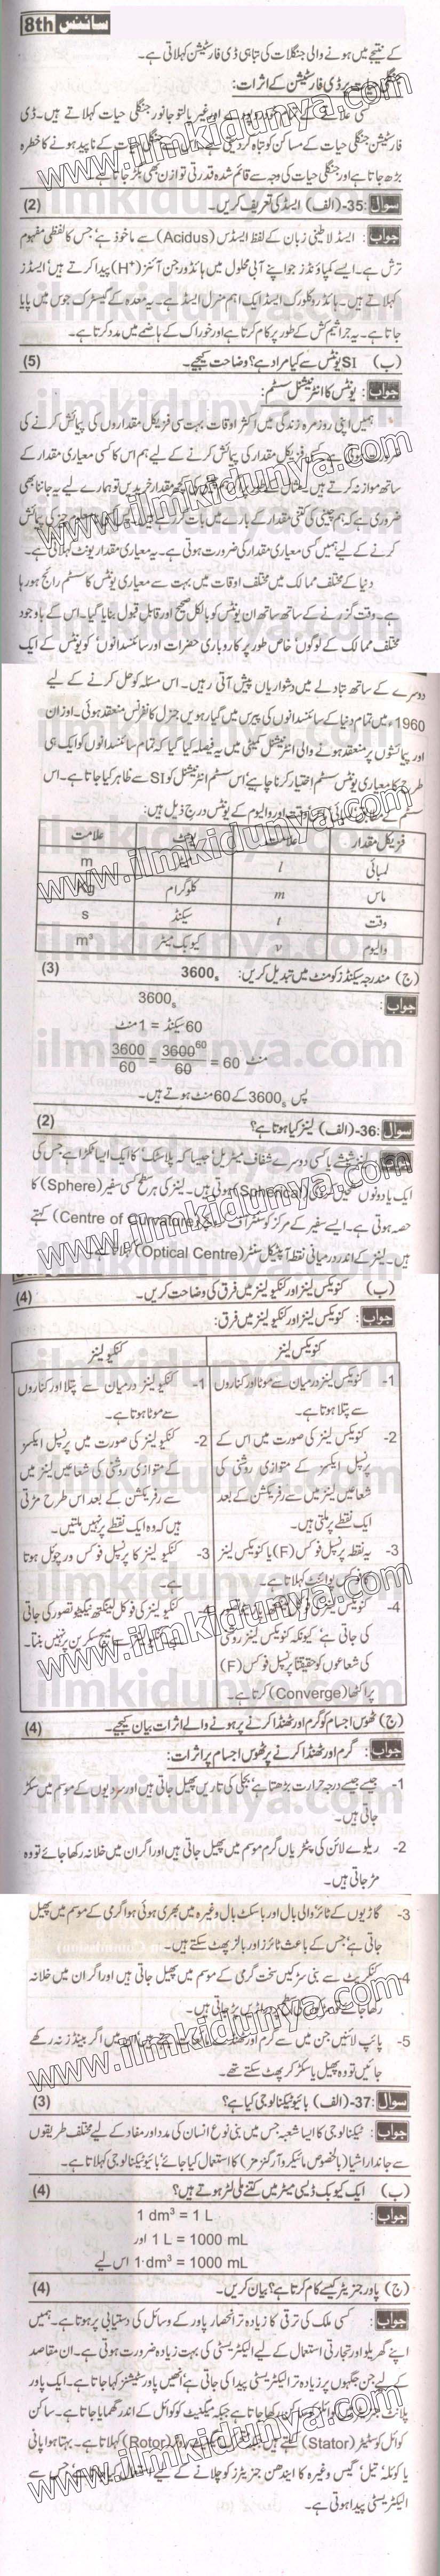 سائنس 8th
کے نتیجے میں ہونے والی جنگلات کی تباہی ڈی فارسٹیشن کہلاتی ہے۔
پر ڈی فارسٹیشن کے اثرات:
فارسٹیشن جنگلی حیات کے مساکن کو تباہ کر دیتی
بڑھ جاتا ہے اور جنگلی حیات کی وجہ سے قائم شدہ قدرتی توازن بھی بگڑ جاتا ہے۔
سوال 35- (الف) ایسڈ کی تعریف کریں۔ (2)
جواب: ایسڈ لاطینی زبان کے لفظ ایسڈس (Acidus) سے ماخوذ ہے جس کا لفظی مفہوم
ترش ہے۔ ایسے کمپاؤنڈز جو اپنے آبی محلول میں ہائڈروجن آئنز (H⁺) پیدا کرتے ہیں' ایسڈز
کہلاتے ہیں۔ ہائڈروکلورک ایسڈ ایک اہم منرل ایسڈ ہے۔ یہ معدہ کے گیسٹرک جوس میں پایا
جاتا ہے۔ یہ جراثیم کش کے طور پر کام کرتا ہے اور خوراک کے ہاضمے میں مدد کرتا ہے۔
(ب) SI یونٹس سے کیا مراد ہے؟ وضاحت کیجیے۔ (5)
جواب: یونٹس کا انٹرنیشنل سسٹم:
ہمیں اپنی روزمرہ زندگی میں اکثر اوقات بہت سی فزیکل مقداروں کی پیمائش کرنے کی
فزیکل مقدار کی پیمائش کرنے کے لیے ہم اس کا کسی معیاری مقدار کے
ساتھ موازنہ کرتے ہیں۔ مقدار خریدیں تو ہمارے لیے یہ جاننا بھی
ضروری ہے کہ ہم چینی کی کتنی مقدار کے بارے میں بات کر رہے ہیں۔
کرنے کے لیے ہمیں کسی معیاری مقدار کی ضرورت ہوتی ہے۔ یہ معیاری مقدار یونٹ کہلاتی ہے۔
دنیا کے مختلف ممالک میں مختلف اوقات میں بہت سے معیاری یونٹس کا سسٹم رائج ہو رہا
ہے۔ وقت گزرنے کے ساتھ ساتھ ان یونٹس کو بالکل صحیح اور قابلِ قبول بنایا گیا۔ اس کے باوجود
مختلف ممالک کے لوگوں' خاص طور پر کاروباری حضرات اور سائنسدانوں' کو یونٹس کے ایک
دوسرے کے ساتھ تبادلے میں دشواریاں پیش آتی رہیں۔ اس مسئلہ کو حل کرنے کے لیے
1960ء میں تمام دنیا کے سائنسدانوں کی پیرس میں گیارہویں جنرل کانفرنس منعقد ہوئی۔ اوزان
اور پیمائشوں پر منعقد ہونے والی انٹرنیشنل کمیٹی میں یہ فیصلہ کیا گیا کہ تمام سائنسدانوں کو ایک ہی
طرح کا معیاری یونٹس سسٹم اختیار کرنا چاہیے' اس سسٹم انٹرنیشنل کو SI سے ظاہر کیا جاتا ہے۔ اس
سسٹم کے وقت اور والیوم کے یونٹس درج ذیل ہیں:
فزیکل مقدار علامت یونٹ علامت
لمبائی l m
ماس m کلوگرام Kg
وقت t سیکنڈ s
والیوم v کیوبک میٹر m³
(ج) مندرجہ سیکنڈز کو منٹ میں تبدیل کریں: 3600s (3)
جواب: 3600s
60 سیکنڈ = 1 منٹ
3600/60 = 3600 60/60 = 60 منٹ
پس 3600s کے 60 منٹ ہوتے ہیں۔
سوال 36- (الف) لینز کیا ہوتا ہے؟ (2)
جواب: لینز شیشے یا کسی دوسرے شفاف میٹریل جیسا کہ پلاسٹک کا ایسا ٹکڑا ہے جس کی
ایک یا دونوں (Spherical) ہوتی ہیں۔ لینز کی ہر سطح کسی سفیر (Sphere) کا
حصہ ہوتی ہے۔ ایسے سفیر کے مرکز کو سنٹر آف (Centre of Curvature) کہتے
ہیں۔ لینز کے اندر درمیانی نقطہ آپٹیکل سنٹر (Optical Centre) کہلاتا ہے۔
(ب) کنویکس لینز اور کنکیو لینز میں فرق کی وضاحت کریں۔ (4)
جواب: کنویکس لینز اور کنکیو لینز میں فرق:
کنویکس لینز کنکیو لینز
1- کنویکس لینز درمیان سے موٹا اور کناروں سے پتلا ہوتا ہے۔
1- کنکیو لینز درمیان سے پتلا اور کناروں سے موٹا ہوتا ہے۔
2- کنویکس لینز کی صورت میں اس کے پرنسپل ایکسز کے متوازی روشنی کی شعاعیں لینز میں سے رفریکشن کے بعد ایک نقطے پر ملتی ہیں۔
2- کنکیو لینز کی صورت میں پرنسپل ایکسز کے متوازی روشنی کی شعاعیں لینز میں سے رفریکشن کے بعد اس طرح مڑتی ہیں کہ وہ ایک نقطے پر نہیں ملتیں۔
3- یہ نقطہ پرنسپل فوکس (F) یا کنویکس لینز کا فوکس پوائنٹ کہلاتا ہے۔
3- کنکیو لینز کا پرنسپل فوکس ورچوئل ہوتا ہے۔
4- کنویکس لینز کی کی جاتی ہے' کیونکہ کنویکس لینز روشنی کی شعاعوں کو حقیقتاً پرنسپل فوکس (F) پر اکٹھا (Converge) کرتا ہے۔
4- کنکیو لینز کی فوکل لینگتھ نیگیٹو تصور کی جاتی ہے امیج سکرین پر نہیں بنتا۔
(ج) ٹھوس اجسام کو گرم اور ٹھنڈا کرنے پر ہونے والے اثرات بیان کیجیے۔ (4)
جواب: گرم اور ٹھنڈا کرنے پر ٹھوس اجسام پر اثرات:
1- جیسے جیسے درجہ حرارت بڑھتا ہے' بجلی کی تاریں پھیل جاتی ہیں اور سردیوں کے موسم میں سکڑ
جاتی ہیں۔
2- ریلوے لائن کی پٹڑیاں گرم موسم میں پھیل جاتی ہیں اور اگر ان میں خلا نہ رکھا جائے تو وہ
مڑ جاتی ہیں۔
3- گاڑیوں کے ٹائر' والی بال اور باسکٹ بال وغیرہ میں بھری ہوئی ہوا گرمی کے موسم میں پھیل
جاتی ہے' جس کے باعث ٹائرز اور بالز پھٹ سکتے ہیں۔
4- کنکریٹ سے بنی سڑکیں سخت گرمی کے موسم میں پھیل جاتی ہیں اور اگر ان میں خلا نہ
رکھا جائے پڑ جاتی ہیں۔
5- پائپ لائنیں جن میں سے گرم اور ان میں اگر بینڈز نہ رکھے
جائیں تو وہ پھیل یا سکڑ کر پھٹ سکتے تھے۔
سوال 37- (الف) بائیوٹیکنالوجی کیا ہے؟ (3)
جواب: ٹیکنالوجی کا ایسا شعبہ جس میں بنی نوع انسان کی مدد اور مفاد کے لیے مختلف طریقوں
سے جاندار اشیا (بالخصوص مائیکرو آرگنزمز) کا استعمال کیا جائے' بائیوٹیکنالوجی کہلاتا ہے۔
(ب) ایک کیوبک ڈیسی میٹر میں کتنے ملی لٹر ہوتے ہیں؟ (4)
جواب: 1 dm³ = 1 L
اور 1 L = 1000 mL
اس لیے 1 dm³ = 1000 mL
(ج) پاور جنریٹر کیسے کام کرتا ہے؟ بیان کریں۔ (4)
جواب: کسی ملک کی ترقی کا زیادہ تر انحصار پاور کے وسائل کی دستیابی پر ہوتا ہے۔ ہمیں
اپنے گھریلو اور تجارتی استعمال کے لیے الیکٹریسٹی کی بہت زیادہ ضرورت ہوتی ہے۔ ان مقاصد
کے لیے جن جگہوں پر زیادہ تر الیکٹریسٹی پیدا کی جاتی ہے' انھیں پاور سٹیشنز کہا جاتا ہے۔ ایک پاور
پلانٹ رکھا جاتا ہے جبکہ میگنیٹ کو کوائل کے اندر گھمایا جاتا ہے۔ ساکن
کوائل کو سٹیٹر (Stator) کہتے ہیں (Rotor) کہلاتا ہے۔ بہتا ہوا پانی
یا کوئلہ' تیل' گیس وغیرہ کا ایندھن جنریٹرز کو چلانے کے لیے جس سے
الیکٹریسٹی پیدا ہوتی ہے۔
www.ilmkidunya.com